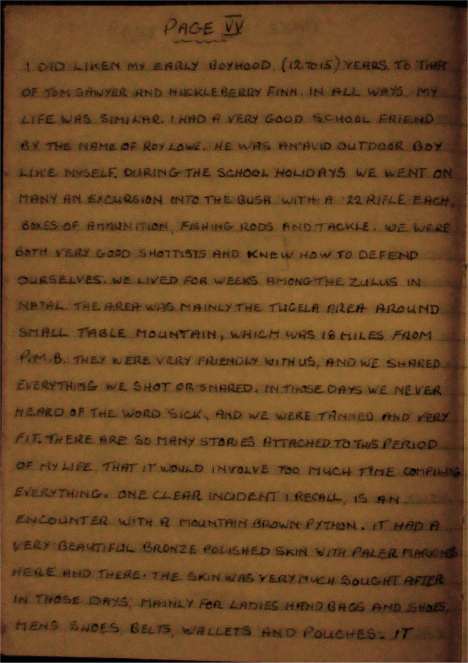 PAGE VV
I DID LIKEN MY EARLY BOYHOOD, (12 TO 15) YEARS, TO THAT
OF TOM SAWYER AND HUCKLEBERRY FINN. IN ALL WAYS MY
LIFE WAS SIMILAR. I HAD A VERY GOOD SCHOOL FRIEND
BY THE NAME OF ROY LOWE. HE WAS AN AVID OUTDOOR BOY
LIKE MYSELF. DURING THE SCHOOL HOLIDAYS WE WENT ON
MANY AN EXCURSION INTO THE BUSH WITH A .22 RIFLE EACH,
BOXES OF AMMUNITION, FISHING RODS AND TACKLE. WE WERE
BOTH VERY GOOD SHOTTISTS AND KNEW HOW TO DEFEND
OURSELVES. WE LIVED FOR WEEKS AMONG THE ZULUS IN
NATAL. THE AREA WAS MAINLY THE TUGELA AREA AROUND
SMALL TABLE MOUNTAIN, WHICH WAS 18 MILES FROM
P.M.B. THEY WERE VERY FRIENDLY WITH US, AND WE SHARED
EVERYTHING WE SHOT OR SNARED. IN THOSE DAYS WE NEVER
HEARD OF THE WORD SICK, AND WE WERE TANNED AND VERY
FIT. THERE ARE SO MANY STORIES ATTACHED TO THIS PERIOD
OF MY LIFE THAT IT WOULD INVOLVE TOO MUCH TIME COMPILING
EVERYTHING. ONE CLEAR INCIDENT I RECALL, IS AN
ENCOUNTER WITH A MOUNTAIN BROWN PYTHON. IT HAD A
VERY BEAUTIFUL BRONZE POLISHED SKIN WITH PALER MARKINGS
HERE AND THERE. THE SKIN WAS VERY MUCH SOUGHT AFTER
IN THOSE DAYS, MAINLY FOR LADIES HAND BAGS AND SHOES,
MENS SHOES, BELTS, WALLETS AND POUCHES. IT